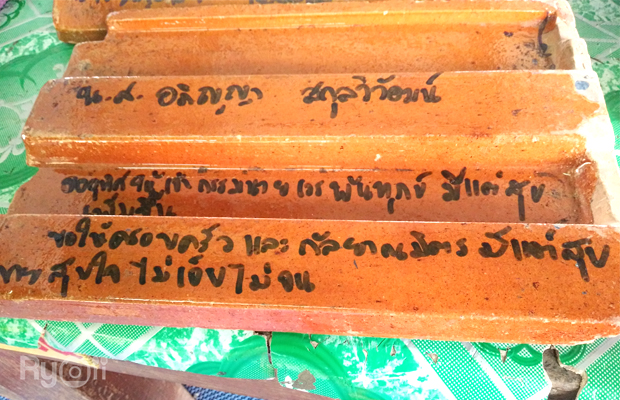 น.ส. อภิญญา สกุลวิวัฒน์
ขออุทิศให้เจ้ากรรมนายเวร พ้นทุกข์ มีแต่สุข
ขอให้ครอบครัว และ กัลยาณมิตร มีแต่สุข
กาย สุขใจ ไม่เจ็บ ไม่จน